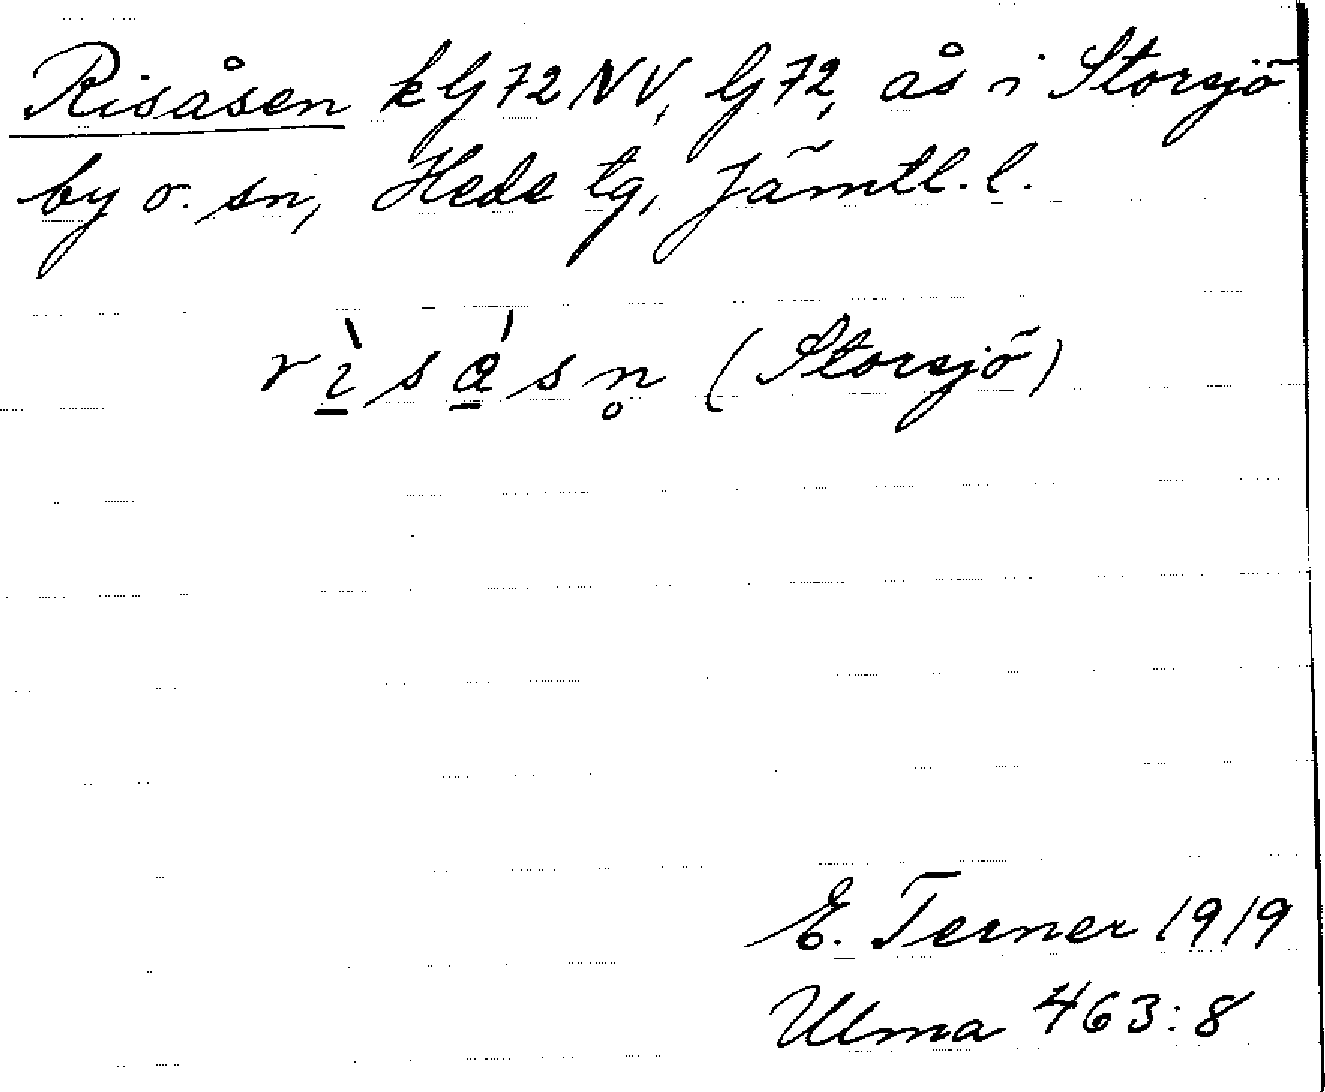 Risåsen k G 72 NV, G 72, ås i Storsjö
by o. sn, Hede tg, Jämtl. l.
(Storsjö)
E. Terner 1919
Ulma 463:8